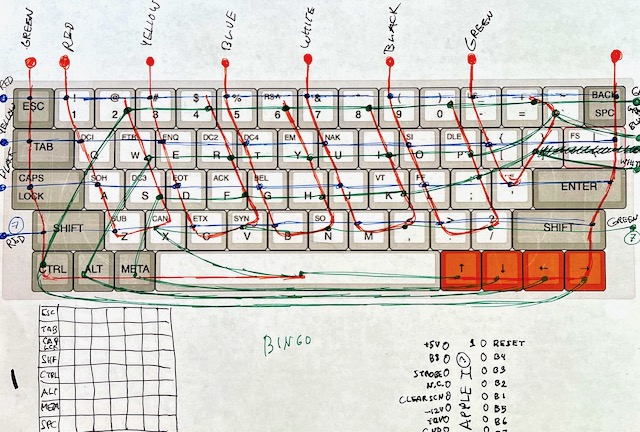 GREEN RED YELLOW BLUE WHITE BLACK GREEN
RED
ESC ! 1 @ 2 # 3 $ 4 % 5 6 & 7 8 ( 9 ) 0 - = ~ BACK SPC
YELLOW
TAB DC1 Q ETB W ENQ E DC2 R DC4 T EM Y NAK U I SI O DLE P { } FS
CAPS LOCK SOH A DC3 S EOT D ACK F BEL G H J VT K FF L ENTER
RED 7 SHIFT SUB Z CAN X ETX C SYN V B SO N M , . ? / SHIFT GREEN 7
CTRL ALT META ↑ ↓ ← →
ESC
TAB
CAPS LCK
SHF
CTRL
ALT
META
SPC
BINGO
+5V 1 RESET
B8 B4
STROBE B3
N.C. B2
CLEARSCN B1
-12V B5
B6
APPLE I